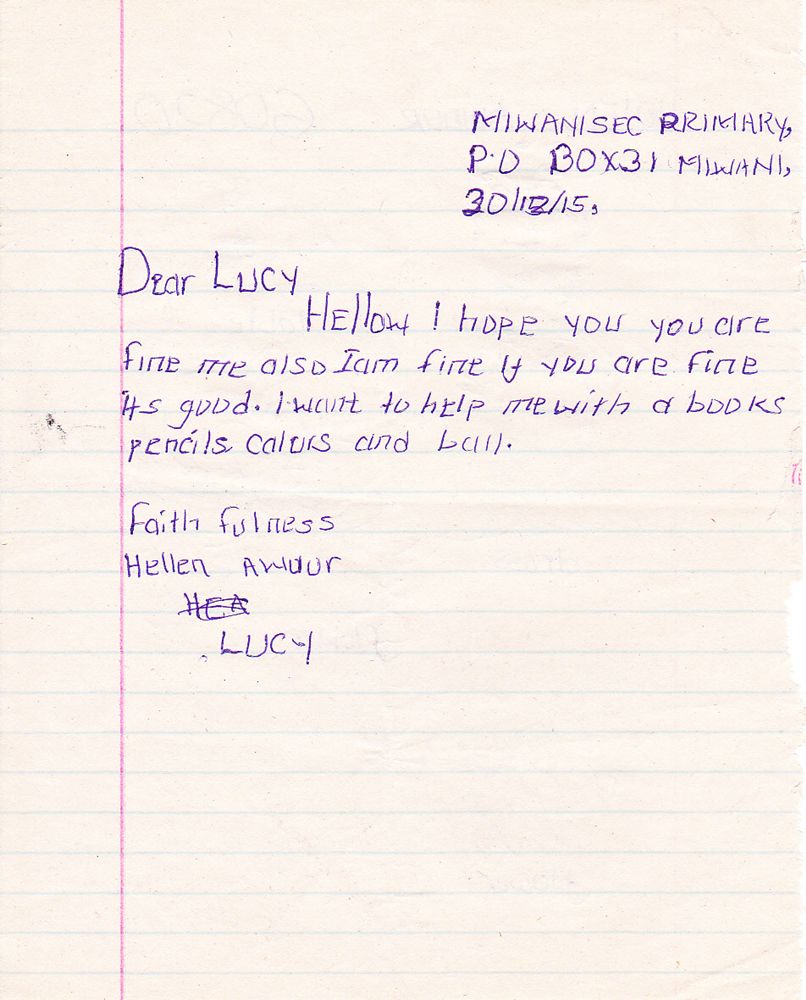 MIWANISEC PRIMARY,
P.O BOX31 MIWANI,
30/12/15,
Dear LUCY
Hellow I hope you you are
fine me also Iam fine If you are fine
its good. I want to help me with a books
pencils colurs and ball.
Faith fulness
Hellen Awuor
HEA
LUCY